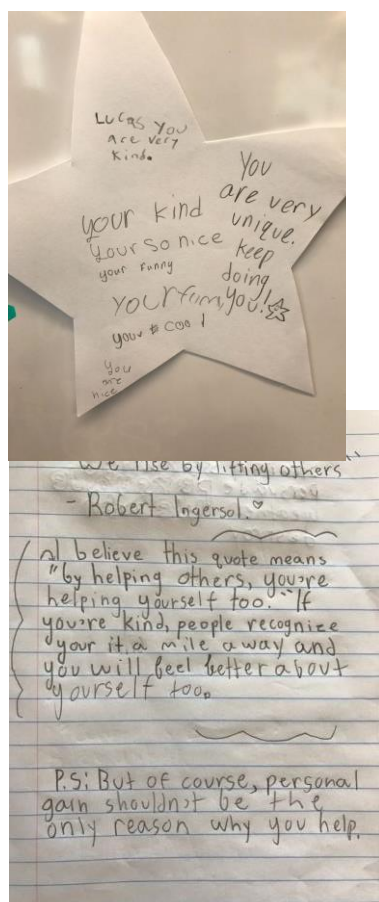 Lucas you
are very
kind.
You
are very
unique.
keep
doing
you!
your kind
your so nice
your funny
your
your cool
you
are
nice
"We rise by lifting others"
- Robert Ingersol.
I believe this quote means
"by helping others, you're
helping yourself too." If
you're kind, people recognize
your it a mile away and
you will feel better about
yourself too.
P.S: But of course, personal
gain shouldn't be the
only reason why you help.